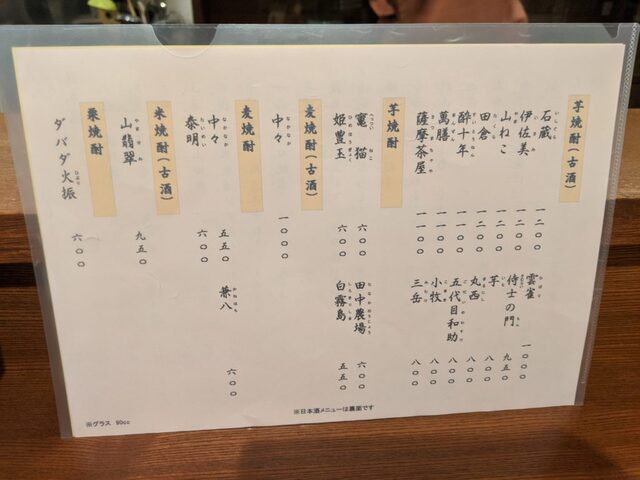 芋焼酎(古酒)
石蔵 一二〇〇
伊佐美 一二〇〇
山ねこ 一二〇〇
田倉 一二〇〇
酔十年 一一〇〇
萬膳 一一〇〇
薩摩茶屋 一一〇〇
雲雀 一〇〇〇
侍士の門 九五〇
芋 八〇〇
丸西 八〇〇
五代目和助 八〇〇
小牧 八〇〇
三岳 八〇〇
芋焼酎
竃猫 六〇〇
姫豊玉 六〇〇
田中農場 六〇〇
白霧島 五五〇
麦焼酎(古酒)
中々 一〇〇〇
麦焼酎
中々 五五〇
泰明 六〇〇
兼八 六〇〇
米焼酎(古酒)
山翡翠 九五〇
栗焼酎
ダバダ火振 六〇〇
※日本酒メニューは裏面です
※グラス 90cc